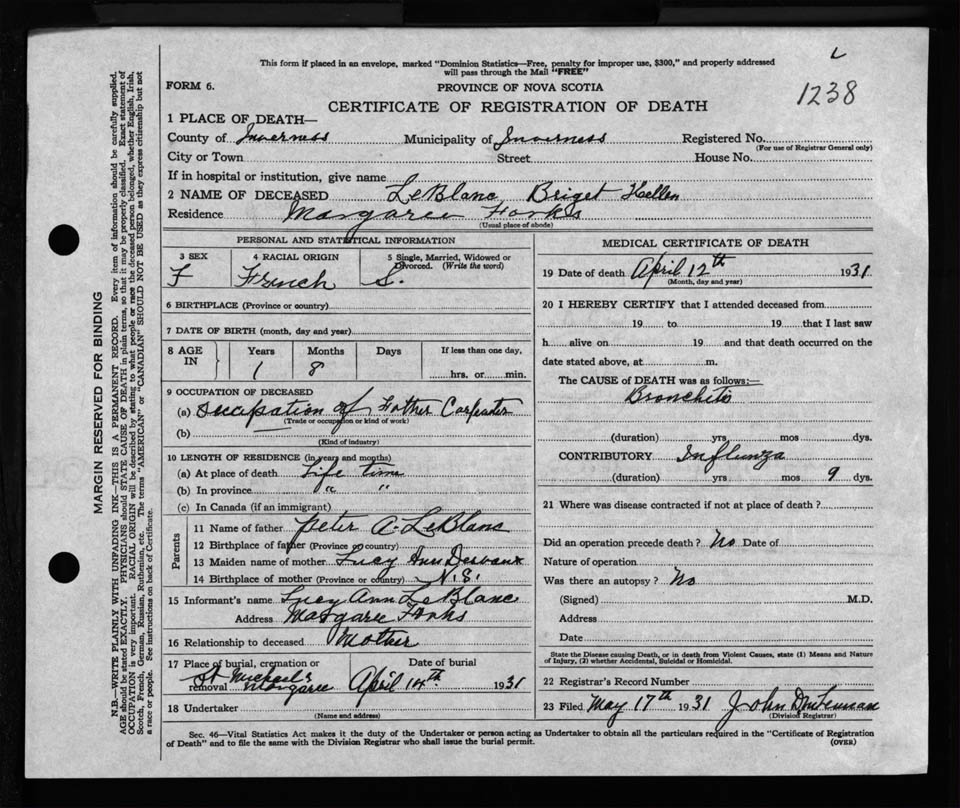 L
This form if placed in an envelope, marked "Dominion Statistics—Free, penalty for improper use, $300," and properly addressed
will pass through the Mail "FREE"
FORM 6.
PROVINCE OF NOVA SCOTIA
1238
CERTIFICATE OF REGISTRATION OF DEATH
1 PLACE OF DEATH—
County of Inverness Municipality of Inverness Registered No.
(For use of Registrar General only)
City or Town Street House No.
If in hospital or institution, give name
2 NAME OF DECEASED LeBlanc Briget Hellen
Residence Margaree Forks
(Usual place of abode)
PERSONAL AND STATISTICAL INFORMATION
3 SEX 4 RACIAL ORIGIN 5 Single, Married, Widowed or
Divorced. (Write the word)
F French S.
6 BIRTHPLACE (Province or country)
7 DATE OF BIRTH (month, day and year)
8 AGE IN Years Months Days If less than one day,
1 8 hrs. or min.
9 OCCUPATION OF DECEASED
(a) Occupation of Father Carpenter
(Trade or occupation or kind of work)
(b)
(Kind of industry)
10 LENGTH OF RESIDENCE (in years and months)
(a) At place of death Life time
(b) In province " "
(c) In Canada (if an immigrant)
Parents
11 Name of father Peter A. LeBlanc
12 Birthplace of father (Province or country)
13 Maiden name of mother Lucy Ann Desvaux
14 Birthplace of mother (Province or country) N.S.
15 Informant's name Lucy Ann LeBlanc
Address Margaree Forks
16 Relationship to deceased Mother
17 Place of burial, cremation or Date of burial
removal St Michael's Margaree April 14th 1931
18 Undertaker
(Name and address)
MEDICAL CERTIFICATE OF DEATH
19 Date of death April 12th 1931
(Month, day and year)
20 I HEREBY CERTIFY that I attended deceased from
19 to 19 that I last saw
h alive on 19 and that death occurred on the
date stated above, at m.
The CAUSE of DEATH was as follows:—
Bronchitis
(duration) yrs mos dys.
CONTRIBUTORY Influnza
(duration) yrs mos 9 dys.
21 Where was disease contracted if not at place of death?
Did an operation precede death? No Date of
Nature of operation
Was there an autopsy? No
(Signed) M.D.
Address
Date
State the Disease causing Death, or in death from Violent Causes, state (1) Means and Nature
of Injury, (2) whether Accidental, Suicidal or Homicidal.
22 Registrar's Record Number
23 Filed May 17th 1931 John
(Division Registrar)
Sec. 46—Vital Statistics Act makes it the duty of the Undertaker or person acting as Undertaker to obtain all the particulars required in the "Certificate of Registration
of Death" and to file the same with the Division Registrar who shall issue the burial permit. (OVER)
MARGIN RESERVED FOR BINDING
N.B.—WRITE PLAINLY WITH UNFADING INK—THIS IS A PERMANENT RECORD. Every item of information should be carefully supplied.
AGE should be stated EXACTLY. PHYSICIANS should STATE CAUSE OF DEATH in plain terms, so that it may be properly classified. Exact statement of
OCCUPATION is very important. RACIAL ORIGIN will be described by stating to what people or race the deceased person belonged, whether English, Irish,
Scotch, French, German, Russian, Ruthenian, etc. The terms "AMERICAN" or "CANADIAN" SHOULD NOT BE USED as they express citizenship but not
a race or people. See instructions on back of Certificate.